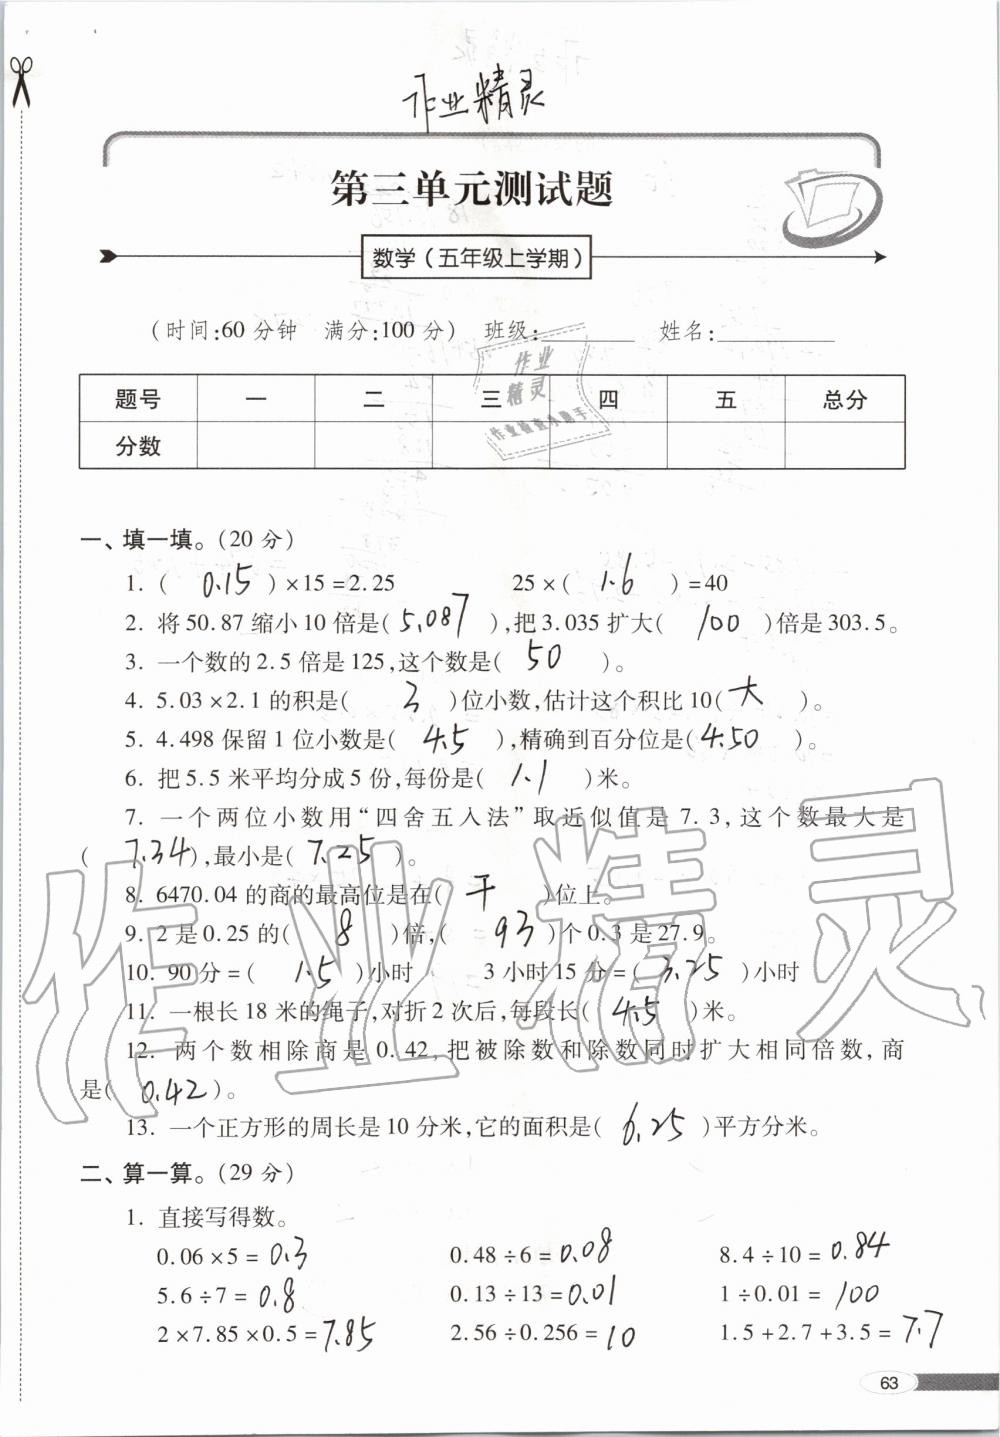 作业精灵
第三单元测试题
数学(五年级上学期)
(时间:60分钟 满分:100分) 班级:________ 姓名:________
题号 一 二 三 四 五 总分
分数
作业
精灵
作业检查小助手
一、填一填。(20分)
1. ( 0.15 )×15=2.25 25×( 1.6 )=40
2. 将50.87缩小10倍是( 5.087 ),把3.035扩大( 100 )倍是303.5。
3. 一个数的2.5倍是125,这个数是( 50 )。
4. 5.03×2.1的积是( 3 )位小数,估计这个积比10( 大 )。
5. 4.498保留1位小数是( 4.5 ),精确到百分位是( 4.50 )。
6. 把5.5米平均分成5份,每份是( 1.1 )米。
7. 一个两位小数用“四舍五入法”取近似值是7.3,这个数最大是
( 7.34 ),最小是( 7.25 )。
8. 6470.04的商的最高位是在( 千 )位上。
9. 2是0.25的( 8 )倍,( 93 )个0.3是27.9。
10. 90分=( 1.5 )小时 3小时15分=( 3.25 )小时
11. 一根长18米的绳子,对折2次后,每段长( 4.5 )米。
12. 两个数相除商是0.42,把被除数和除数同时扩大相同倍数,商
是( 0.42 )。
13. 一个正方形的周长是10分米,它的面积是( 6.25 )平方分米。
作业精灵
二、算一算。(29分)
1. 直接写得数。
0.06×5=0.3 0.48÷6=0.08 8.4÷10=0.84
5.6÷7=0.8 0.13÷13=0.01 1÷0.01=100
2×7.85×0.5=7.85 2.56÷0.256=10 1.5+2.7+3.5=7.7
63